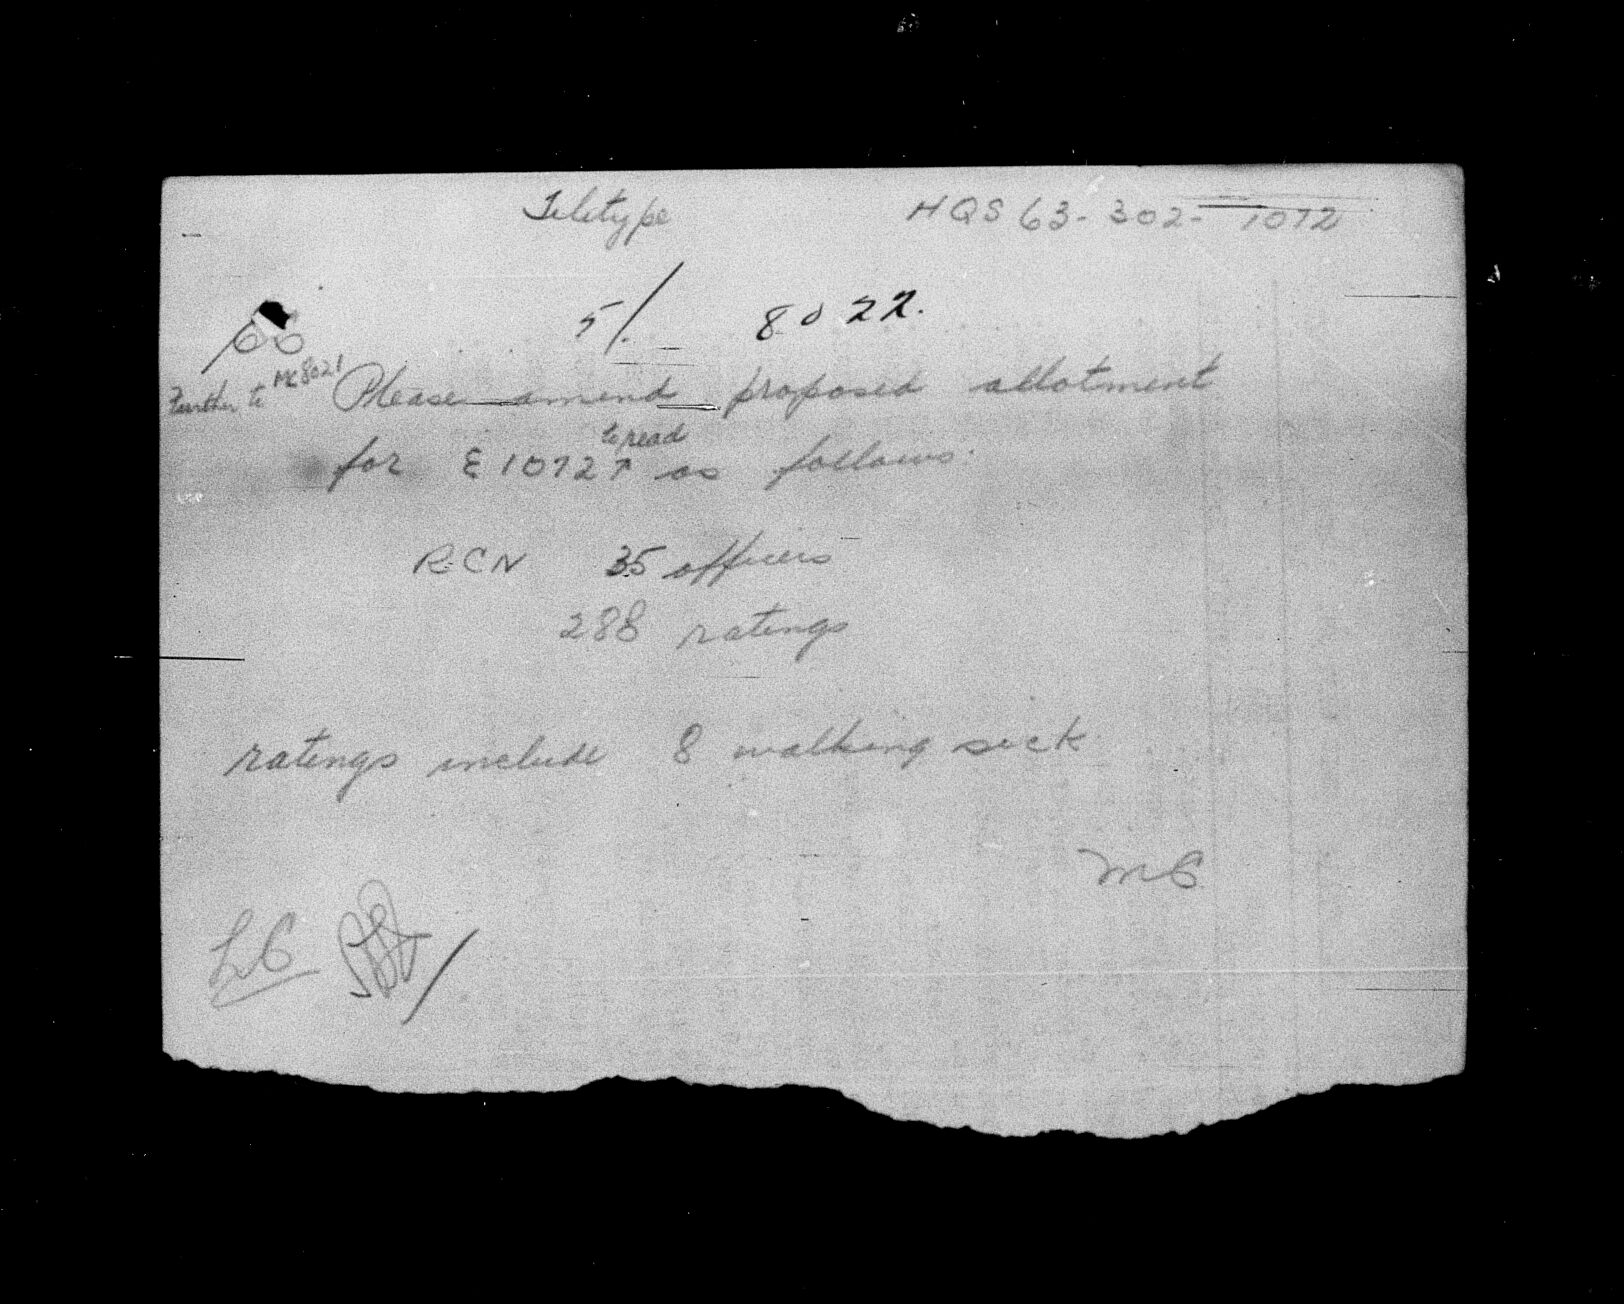 Teletype HQS 63-302-1072
5/ 8022.
Further to MC8021 Please amend proposed allotment
to read
for E1072 ↑ as follows.
RCN 35 officers
288 ratings
ratings include 8 walking sick
MC